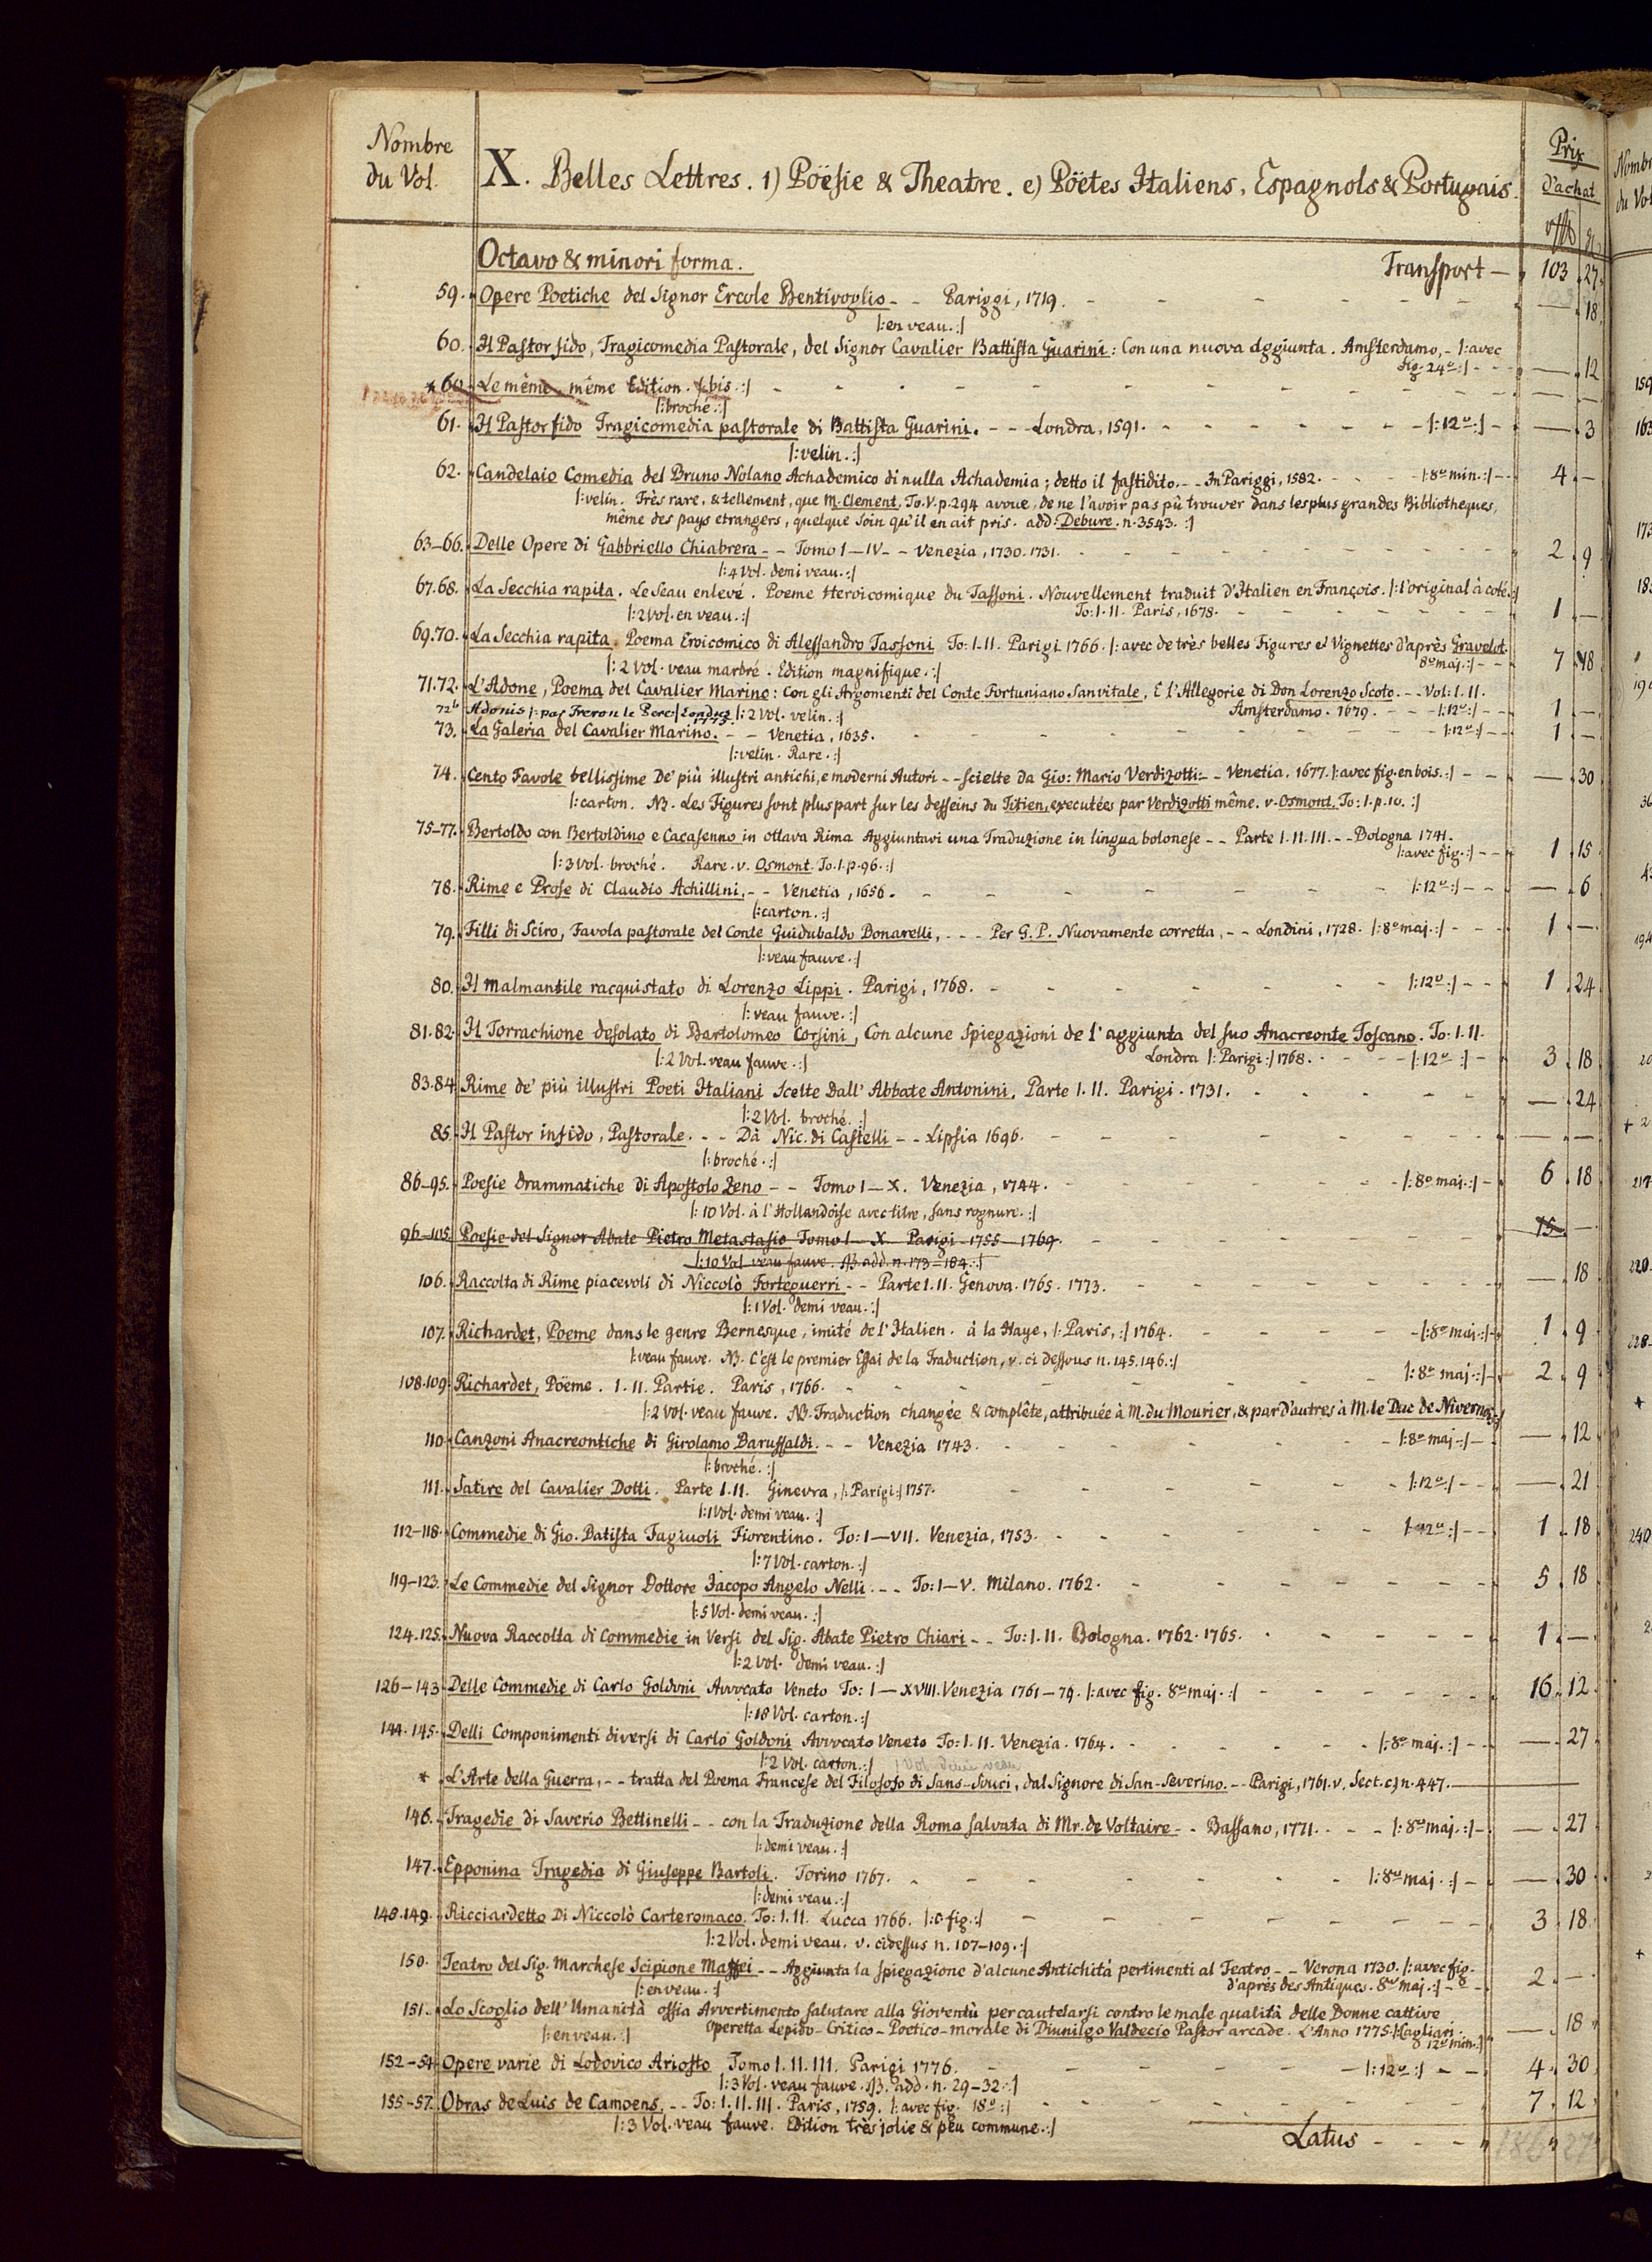 Nombre du Vol.
X. Belles Lettres. 1) Poësie & Theatre. e) Poëtes Italiens, Espagnols & Portugais.
Prix d'achat
Octavo & minori forma. Transport — 103 . 27
59. Opere Poetiche del Signor Ercole Bentivoglio - - Pariggi, 1719. — . 18
|: en veau. :|
60. Il Pastor fido, Tragicomedia Pastorale, del Signor Cavalier Battista Guarini: Con una nuova Aggiunta. Amsterdamo, - |: avec
fig. 24º :| — . 12
* 60. Le même, même Edition. |: bis. :| — —
|: broché. :|
61. Il Pastor fido Tragicomedia pastorale di Battista Guarini. - - - Londra, 1591. |: 12º :| — . 3
|: velin. :|
62. Candelaio Comedia del Bruno Nolano Achademico di nulla Achademia; detto il fastidito. - - In Pariggi, 1582. |: 8º min. :| 4 . —
|: velin. Très rare, & tellement, que M. Clement. To. V. p. 294 avoue, de ne l'avoir pas pû trouver dans les plus grandes Bibliotheques,
même des pays etrangers, quelque soin qu'il en ait pris. add. Debure. n. 3543. :|
63–66. Delle Opere di Gabbriello Chiabrera - - Tomo I—IV - - Venezia, 1730. 1731. 2 . 9
|: 4 Vol. demi veau. :|
67.68. La Secchia rapita. Le Seau enlevé. Poeme Heroicomique du Tassoni. Nouvellement traduit d'Italien en François. |: l'original à coté :|
|: 2 Vol. en veau. :| To: I. II. Paris, 1678. 1 . —
69.70. La Secchia rapita. Poema Eroicomico di Alessandro Tassoni To: I. II. Parigi 1766. |: avec de très belles Figures et Vignettes d'après Gravelot.
|: 2 Vol. veau marbré. Edition magnifique. :| 8º maj. :| 7 . 18
71.72. L'Adone, Poema del Cavalier Marino: Con gli Argomenti del Conte Fortuniano Sanvitale, E l'Allegorie di Don Lorenzo Scoto. - - Vol: I. II.
72b Adonis |: par Freron le Pere :| Londres 1775. |: 2 Vol. velin. :| Amsterdamo. 1679. |: 12º :| 1 . —
73. La Galeria del Cavalier Marino. - - Venetia, 1635. |: 12º :| 1 . —
|: velin. Rare. :|
74. Cento Favole bellissime De' più illustri antichi, e moderni Autori - - scielte da Gio: Mario Verdizotti. - - Venetia. 1677. |: avec fig. en bois. :| — . 30
|: carton. NB. Les Figures sont pluspart sur les desseins du Titien, executées par Verdizotti même. v. Osmont. To: I. p. 10. :|
75–77. Bertoldo con Bertoldino e Cacasenno in ottava Rima Aggiuntavi una Traduzione in lingua bolonese - - Parte I. II. III. - - Bologna 1741.
|: 3 Vol. broché. Rare. v. Osmont. To. I. p. 96. :| |: avec fig. :| 1 . 15
78. Rime e Prose di Claudio Achillini. - - Venetia, 1656. |: 12º :| — . 6
|: carton. :|
79. Filli di Sciro, Favola pastorale del Conte Guidubaldo Bonarelli, - - - Per G. P. Nuovamente corretta, - - Londini, 1728. |: 8º maj. :| 1 . —
|: veau fauve. :|
80. Il Malmantile racquistato di Lorenzo Lippi. Parigi, 1768. |: 12º :| 1 . 24
|: veau fauve. :|
81.82. Il Torrachione desolato di Bartolomeo Corsini, Con alcune spiegazioni de l'aggiunta del suo Anacreonte Toscano. To: I. II.
|: 2 Vol. veau fauve. :| Londra |: Parigi :| 1768. |: 12º :| 3 . 18
83.84. Rime de' più illustri Poeti Italiani Scelte Dall' Abbate Antonini. Parte I. II. Parigi. 1731. — . 24
|: 2 Vol. broché. :|
85. Il Pastor infido, Pastorale. - - Dà Nic. di Castelli - - Lipsia 1696. — —
|: broché. :|
86–95. Poesie drammatiche di Apostolo Zeno - - Tomo I—X. Venezia, 1744. |: 8º maj. :| 6 . 18
|: 10 Vol. à l'Hollandoise avec titre, sans rognure. :|
96–105. Poesie del Signor Abate Pietro Metastasio Tomo I—X Parigi 1755–1769. 15 . —
|: 10 Vol. veau fauve. NB. add. n. 173–184. :|
106. Raccolta di Rime piacevoli di Niccolò Forteguerri - - Parte I. II. Genova. 1765. 1773. — . 18
|: 1 Vol. demi veau. :|
107. Richardet, Poeme dans le genre Bernesque, imité de l'Italien. à la Haye, |: Paris, :| 1764. |: 8º maj. :| 1 . 9
|: veau fauve. NB. C'est le premier Essai de la Traduction, v. ci dessous n. 145. 146. :|
108.109. Richardet, Pöeme. I. II. Partie. Paris, 1766. |: 8º maj. :| 2 . 9
|: 2 Vol. veau fauve. NB. Traduction changée & complête, attribuée à M. du Mourier, & par d'autres à M. le Duc de Nivernois :|
110. Canzoni Anacreontiche di Girolamo Baruffaldi. - - Venezia 1743. |: 8º maj. :| — . 12
|: broché. :|
111. Satire del Cavalier Dotti. Parte I. II. Ginevra, |: Parigi :| 1757. |: 12º :| — . 21
|: 1 Vol. demi veau. :|
112–118. Commedie di Gio. Batista Fagiuoli Fiorentino. To: I—VII. Venezia, 1753. |: 12º :| 1 . 18
|: 7 Vol. carton. :|
119–123. Le Commedie del Signor Dottore Jacopo Angelo Nelli. - - To: I—V. Milano. 1762. 5 . 18
|: 5 Vol. demi veau. :|
124.125. Nuova Raccolta di Commedie in Versi del Sig. Abate Pietro Chiari - - To: I. II. Bologna. 1762. 1765. 1 . —
|: 2 Vol. demi veau. :|
126–143. Delle Commedie di Carlo Goldoni Avvocato Veneto To: I—XVIII. Venezia 1761–79. |: avec fig. 8º maj. :| 16 . 12
|: 18 Vol. carton. :|
144.145. Delli Componimenti diversi di Carlo Goldoni Avvocato Veneto To: I. II. Venezia. 1764. |: 8º maj. :| — . 27
|: 2 Vol. carton. :|
* L'Arte della Guerra, - - tratta del Poema Francese del Filosofo di Sans-Souci, dal Signore di San-Severino. - - Parigi, 1761. v. Sect. c) n. 447.
146. Tragedie di Saverio Bettinelli - - con la Traduzione della Roma salvata di Mr. de Voltaire - - Bassano, 1771. |: 8º maj. :| — . 27
|: demi veau. :|
147. Epponina Tragedia di Giuseppe Bartoli. Torino 1767. |: 8º maj. :| — . 30
|: demi veau. :|
148.149. Ricciardetto Di Niccolò Carteromaco. To: I. II. Lucca 1766. |: c. fig. :| 3 . 18
|: 2 Vol. demi veau. v. cidessus n. 107–109. :|
150. Teatro del Sig. Marchese Scipione Maffei - - Aggiunta la spiegazione d'alcune Antichità pertinenti al Teatro - - Verona 1730. |: avec fig.
|: en veau. :| d'après des Antiques. 8º maj. :| 2 . —
151. Lo Scoglio dell' Umanità ossia Avvertimento salutare alla Gioventù per cautelarsi contro le male qualità delle Donne cattive
|: en veau. :| Operetta Lepido-Critico-Poetico-morale di Diunilgo Valdecio Pastor arcade. L'Anno 1775. |: Cagliari.
12º min. :| — . 18
152–54. Opere varie di Lodovico Ariosto Tomo I. II. III. Parigi 1776. |: 12º :| 4 . 30
|: 3 Vol. veau fauve. NB. add. n. 29–32. :|
155–57. Obras de Luis de Camoens. - - To: I. II. III. Paris, 1759. |: avec fig. 18º :| 7 . 12
|: 3 Vol. veau fauve. Edition très jolie & peu commune. :|
Latus - - - 186 . 27